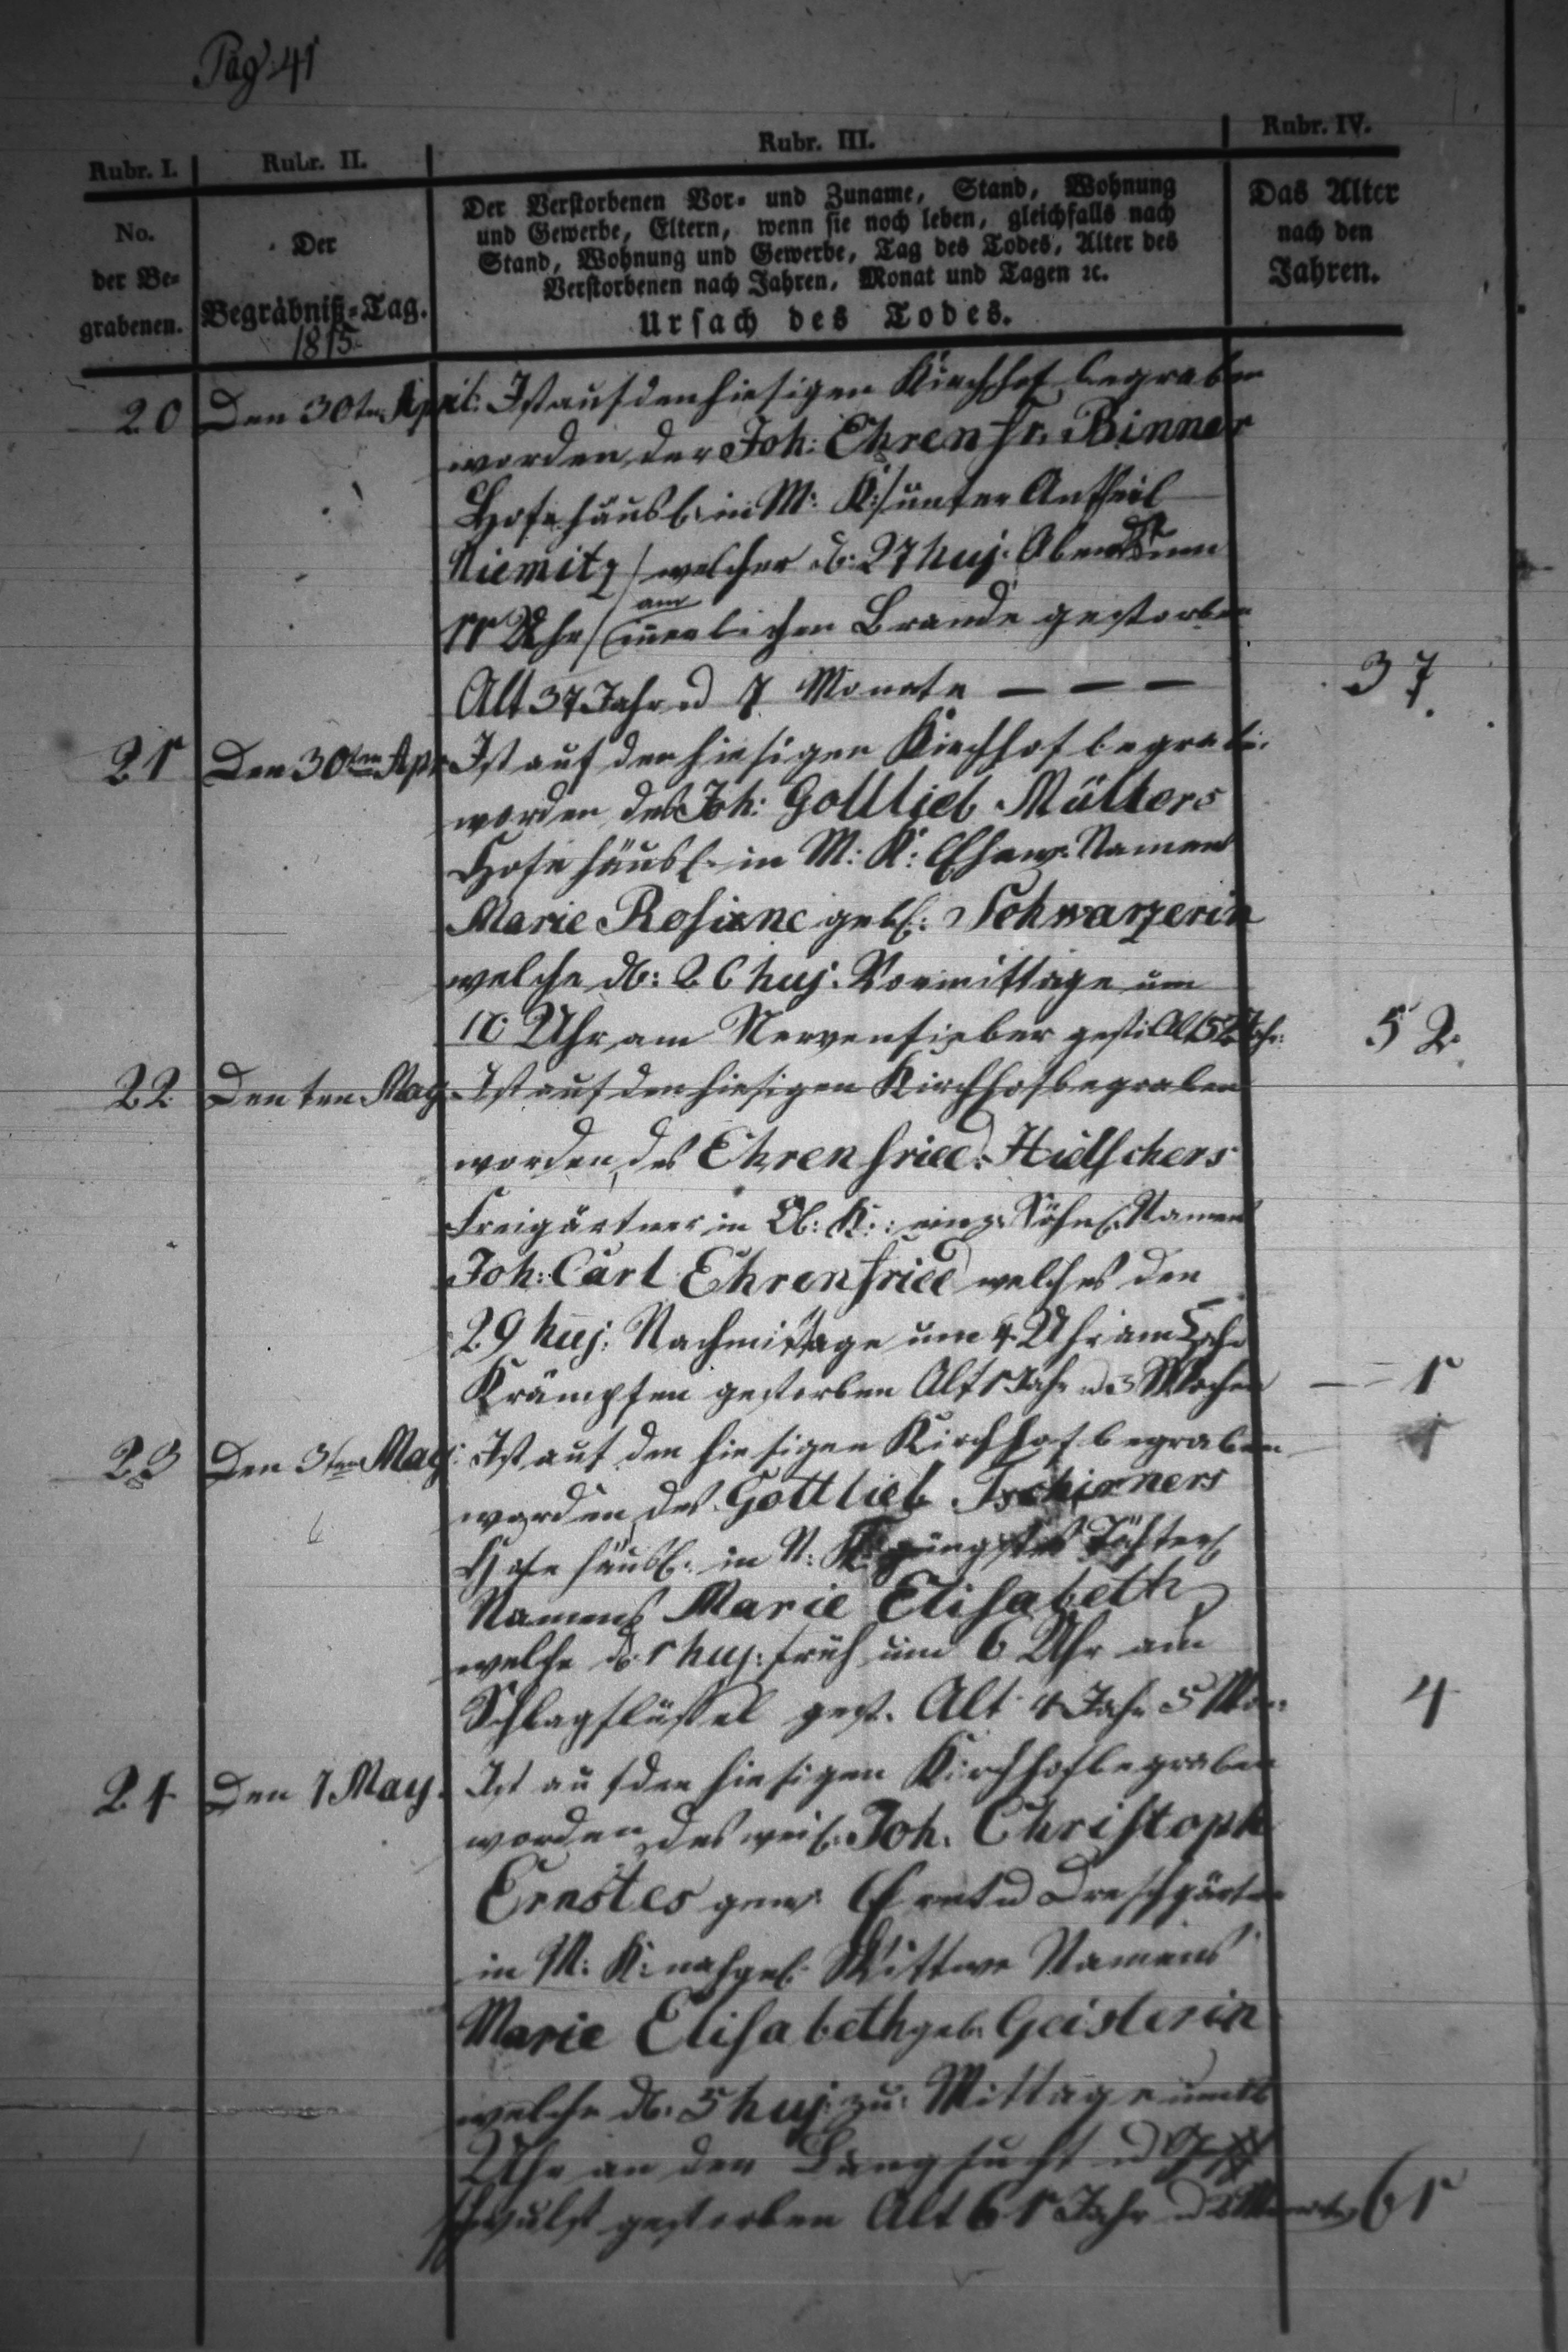 Pag: 41
Rubr. I. Rubr. II. Rubr. III. Rubr. IV.
No. der Be-grabenen.
Der Begräbniß-Tag. 1815
Der Verstorbenen Vor- und Zuname, Stand, Wohnung
und Gewerbe, Eltern, wenn sie noch leben, gleichfalls nach
Stand, Wohnung und Gewerbe, Tag des Todes, Alter des
Verstorbenen nach Jahren, Monat und Tagen ꝛc.
Ursach des Todes.
Das Alter nach den Jahren.
20 Den 30ten April: Ist auf den hiesigen Kirchhof begraben
worden, der Joh: Ehrenfr. Binner
Hofehäusl: in M: K:/ unter Antheil
Niemitz/ welcher d: 27 huj: Abends um
11 Uhr/ am inerlichen Brande gestorben
Alt 37 Jahr u 7 Monate — — — 37.
21 Den 30ten Apr Ist auf den hiesigen Kirchhof begrab:
worden des Joh: Gottlieb Müllers
Hofehäusl: in M: K: Ehew: Namens
Marie Rosine geb: Schwarzerin
welche d: 26 huj: Vormittage um
10 Uhr am Nervenfieber gest: Alt 52 Jahr: 52
22 Den ten May Ist auf den hiesigen Kirchhof begraben
worden, des Ehrenfried: Hielschers
Freigärtner in Ob: K: einz: Söhnl: Namens
Joh: Carl Ehrenfried welches den
29 huj: Nachmittage um 4 Uhr am
Krämpfen gestorben Alt 1 Jahr u 3 Wochen — 1
23 Den 3ten May: Ist auf den hiesigen Kirchhof begraben
worden, des Gottlieb Tschirners
Hofehäusl: in N: K: jüngstes Töchterl
Namens Marie Elisabeth
welche d: 1 huj: früh um 6 Uhr am
Schlagflüssel gest. Alt 4 Jahr 5 Mon: 4
24 Den 7 May. Ist auf den hiesigen Kirchhof begraben
worden, des weil: Joh. Christoph
Ernstes gew: Dreschgärtner
in M: K: nachgel: Wittwe Namens
Marie Elisabeth geb. Geislerin
welche d: 5 huj: zu Mittage um
Uhr an der Lungsucht u Ge
schwulst gestorben Alt 61 Jahr u 61